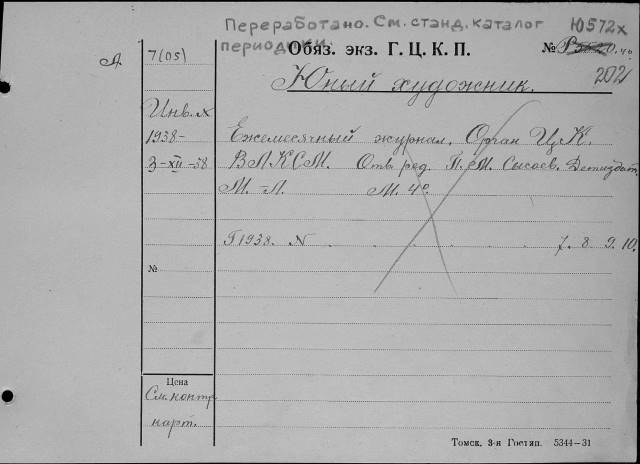 Переработано. См. станд. каталог Ю572х
периодики.
Обяз. экз. Г. Ц. К. П. №
202
А 7(05)
Юный художник.
Инв. №
1938- Ежемесячный журнал. Орган Ц.К.
3-XII-38 ВЛКСМ. Отв. ред. П. М. Сысоев. Детиздат.
М.-Л. М. 4°.
Г1938. N . . . . . 7. 8. 9. 10.
№
Цена
См. контр.
карт.
Томск. 3-я Гостип. 5344—31